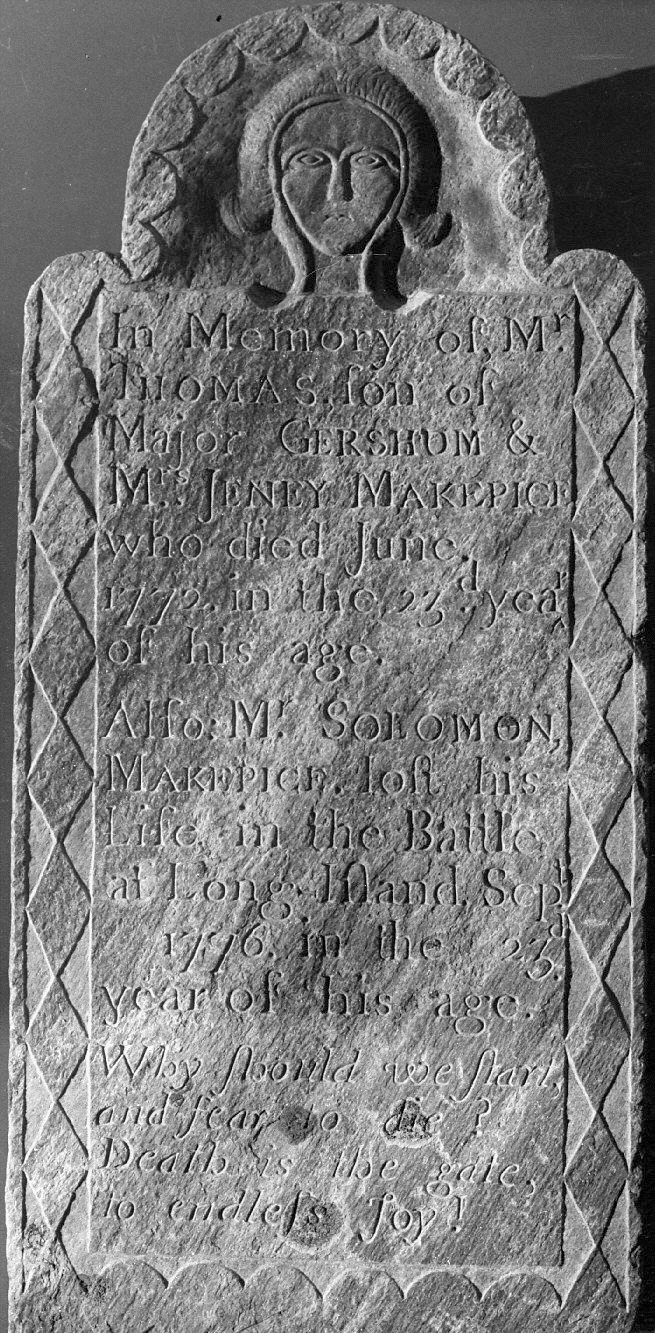 In Memory of Mʳ.
THOMAS, ſon of
Major GERSHUM &
Mʳˢ. JENEY MAKEPICE
who died June.
1772. in the 23.ᵈ year
of his age.
Alſo: Mʳ. SOLOMON,
MAKEPICE. loſt his
Life in the Battle
at Long-Iſland. Sepᵗ
1776. in the 23ᵈ.
year of his age.
Why ſhould we ſtart,
and fear to die?
Death is the gate,
to endleſs Joy!